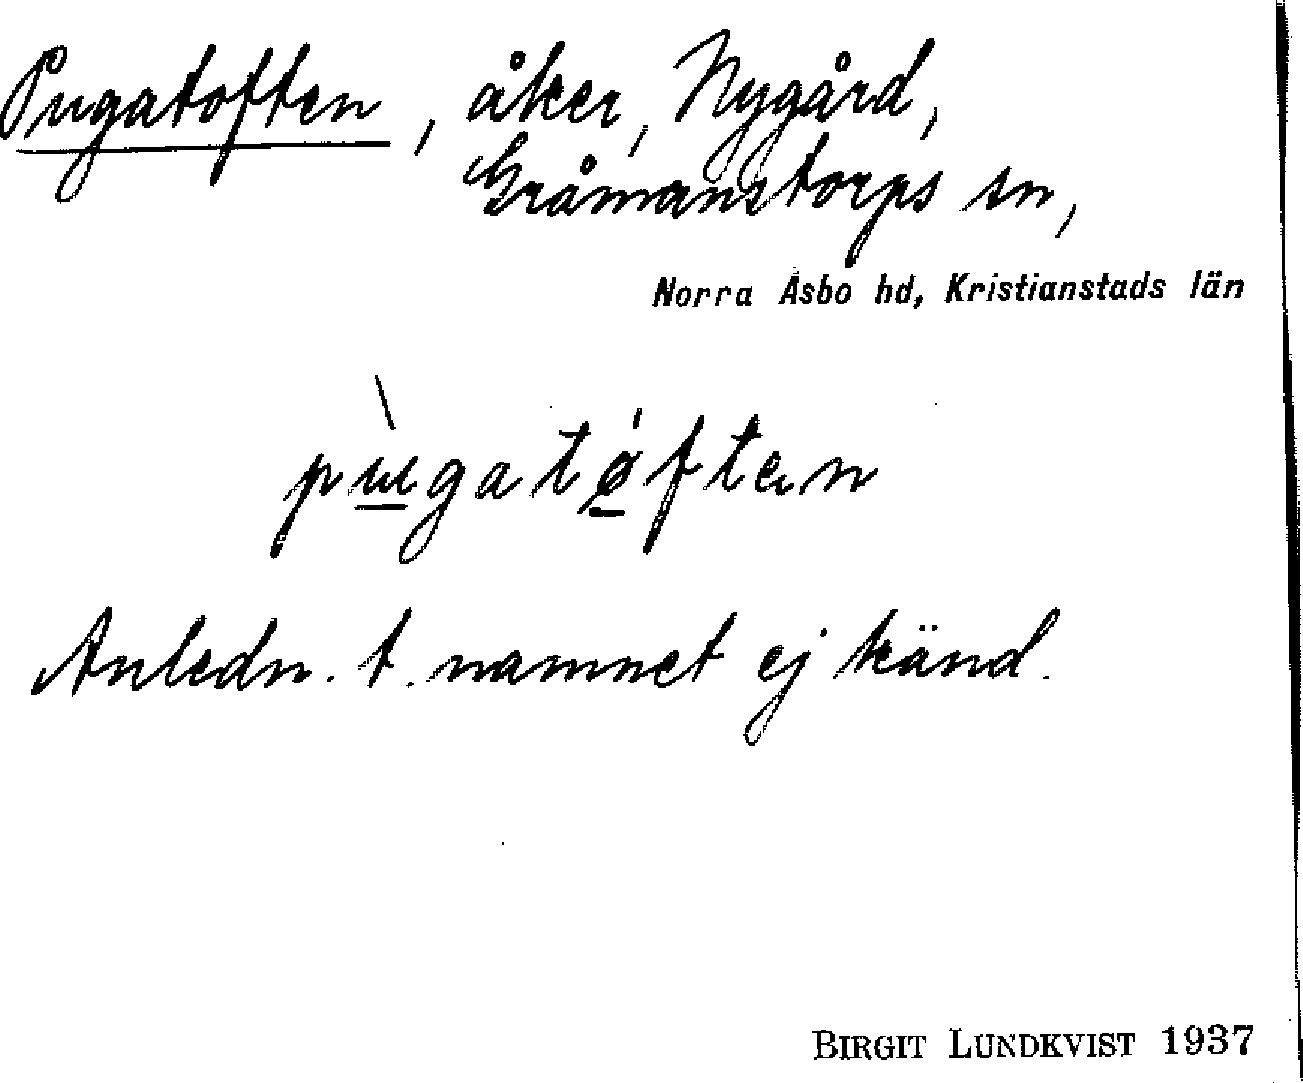 Pugatoften, åker, Nygård,
Gråmanstorps sn,
Norra Åsbo hd, Kristianstads län
Anledn. t. namnet ej känd.
BIRGIT LUNDKVIST 1937